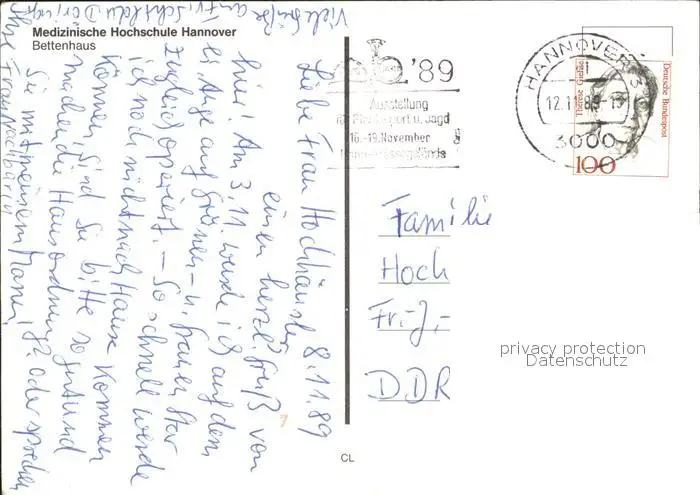 Medizinische Hochschule Hannover
Bettenhaus
8.11.89
Liebe Frau Hochhäusler
einen herzl. Gruß von
hier! Am 3.11. wurde ich auf dem
Auge auf Grünen- u. Grauen Star
zugleich operiert. – So schnell werde
ich noch nicht nach Hause kommen
können. Sind Sie bitte so gut und
machen die Hausordnung oder sprechen
Sie mit meinem Mann,
Ihre Frau Nachbarin
Viele Grüße an
'89
Ausstellung
Pferdesport u. Jagd
16.-19. November
HANNOVER
12.11.89
3000
Deutsche Bundespost
Therese Giehse
100
Familie
Hoch
Fr.-J.-
DDR
privacy protection
Datenschutz
CL